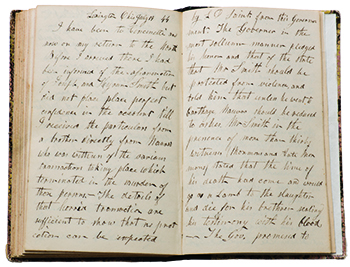 Lexington Ohio July 14 44
I have been to Cincinnati and
am on my return to the North
Before I arrived there I had
been informed of the assassination
of Joseph and Hyrum Smith but
did not place perfect
confidence in the account till
I received the particulars from
a brother directly from Nauvoo
who was witness of the various
transactions taking place which
terminated in the murder of
these persons — The details of
that horrid transaction are
sufficient to show that no
can be imputed
by L D Saints from this Govern
ment. The Governor in the
most solemn manner pledged
his honor and that of the state
that Mr Smith should be
protected from violence and
told them that unless he went to
Carthage Nauvoo should be reduced
to ashes Mr Smith in the
presence of more than thirty
witnesses
stated that the time of
his death had come and would
go as a Lamb to the slaughter
and die for his brethren sealing
his testimony with his blood
— The Gov. promised to